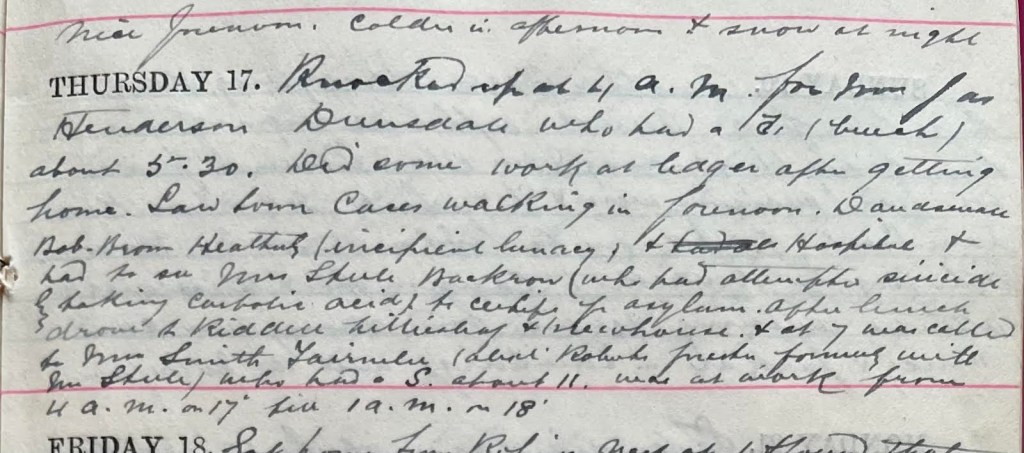 Nice forenoon. Colder in afternoon & snow at night
THURSDAY 17. Knocked up at 4 a.m. for Mrs Jas
Henderson Dunsdale who had a D. (breech)
about 5-30. Did some work at ledger after getting
home. Saw town cases walking in forenoon.
Bob-Brown (incipient lunacy) & Hospital &
had to see Mrs Steele Backrow (who had attempted suicide
by taking carbolic acid) to certify for asylum. After lunch
drove to Riddell & Newhouse. & at 7 was called
to Mrs Smith Fairnilee Roberts formerly with
Mrs Steele) who had a S. about 11. was at work from
4 a.m. on 17 till 1 a.m. on 18
FRIDAY 18.